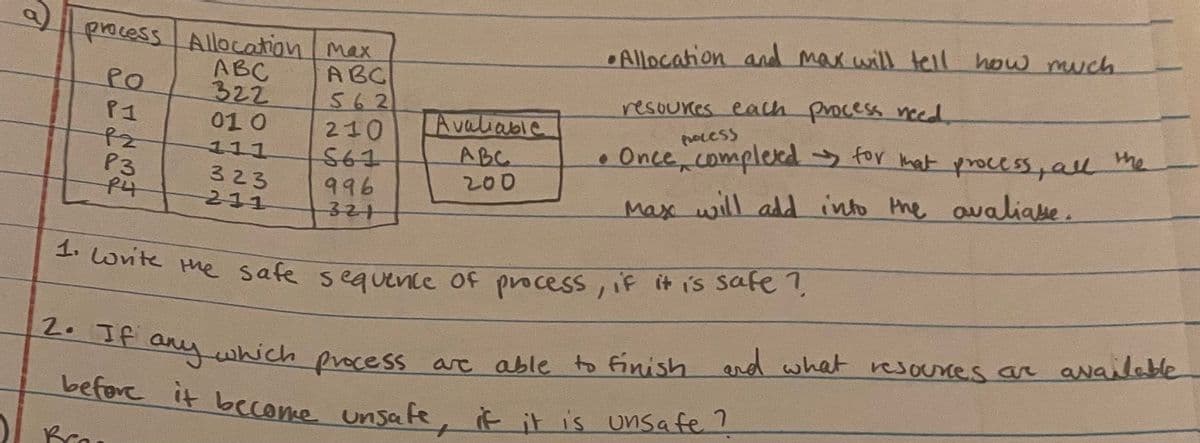 a)
process Allocation max
ABC ABC
P0 322 562
P1 010 210
P2 111 561
P3 323 996
P4 211 321
Avaliable
ABC
200
• Allocation and max will tell how much
resources each process need.
• Once process completed → for that process, all the
Max will add into the avaliable.
1. Write the safe sequence of process, if it is safe?
2. If any which process are able to finish and what resources are available
before it become unsafe, if it is unsafe?